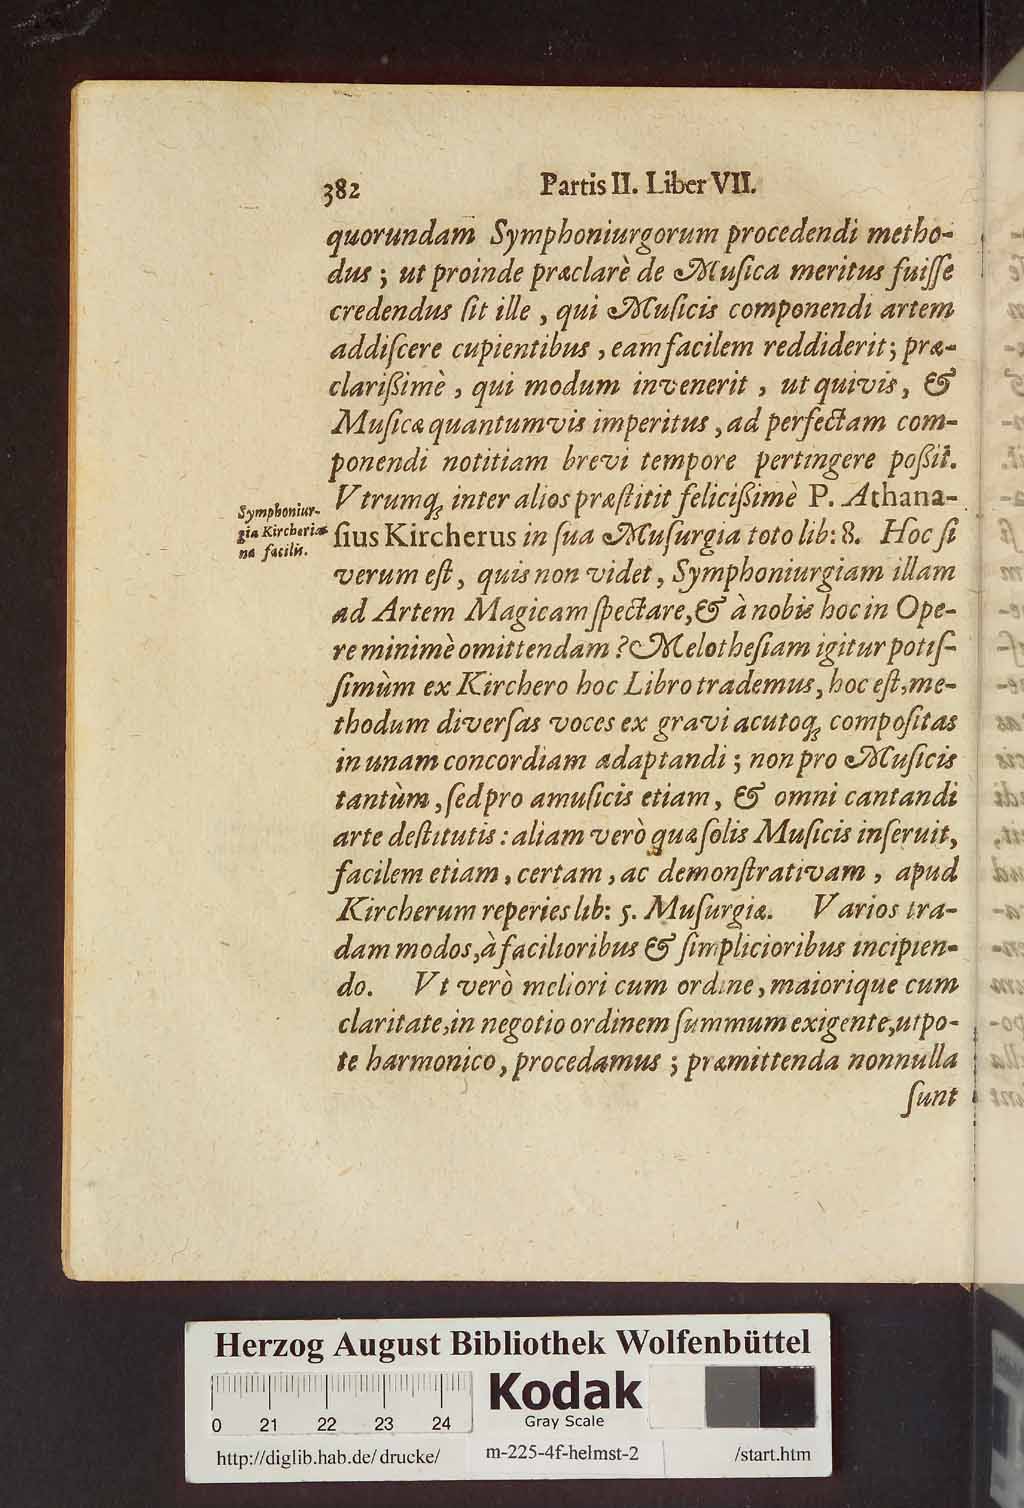 382 Partis II. Liber VII.
quorundam Symphoniurgorum procedendi metho-
dus ; ut proinde præclarè de Muſica meritus fuiſſe
credendus ſit ille , qui Muſicis componendi artem
addiſcere cupientibus , eam facilem reddiderit ; præ-
clarißimè , qui modum invenerit , ut quivis , &
Muſicæ quantumvis imperitus , ad perfectam com-
ponendi notitiam brevi tempore pertingere poßit.
Utrumq; inter alios præſtitit felicißimè P. Athana-
Symphoniur-
gia Kircheria-
na facilis.
ſius Kircherus in ſua Muſurgia toto lib: 8. Hoc ſi
verum eſt, quis non videt, Symphoniurgiam illam
ad Artem Magicam ſpectare, & à nobis hoc in Ope-
re minimè omittendam ? Melotheſiam igitur potiſ-
ſimùm ex Kirchero hoc Libro trademus, hoc eſt, me-
thodum diverſas voces ex gravi acutoq; compoſitas
in unam concordiam adaptandi ; non pro Muſicis
tantùm , ſed pro amuſicis etiam, & omni cantandi
arte deſtitutis : aliam verò quæ ſolis Muſicis inſeruit,
facilem etiam , certam , ac demonſtrativam , apud
Kircherum reperies lib: 5. Muſurgiæ. Varios tra-
dam modos, à facilioribus & ſimplicioribus incipien-
do. Ut verò meliori cum ordine, maiorique cum
claritate, in negotio ordinem ſummum exigente, utpo-
te harmonico, procedamus ; præmittenda nonnulla
ſunt
Herzog August Bibliothek Wolfenbüttel
Kodak
Gray Scale
0 21 22 23 24
http://diglib.hab.de/drucke/ m-225-4f-helmst-2 /start.htm